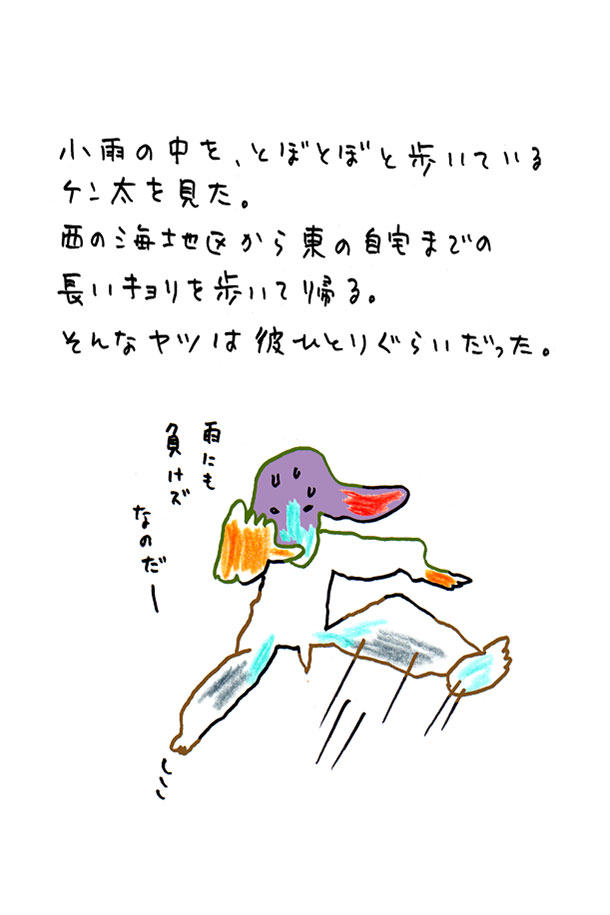 小雨の中を、とぼとぼと歩いている
ケン太を見た。
西の海地区から東の自宅までの
長いキョリを歩いて帰る。
そんなヤツは彼ひとりぐらいだった。
雨にも
負けズ
なのだー